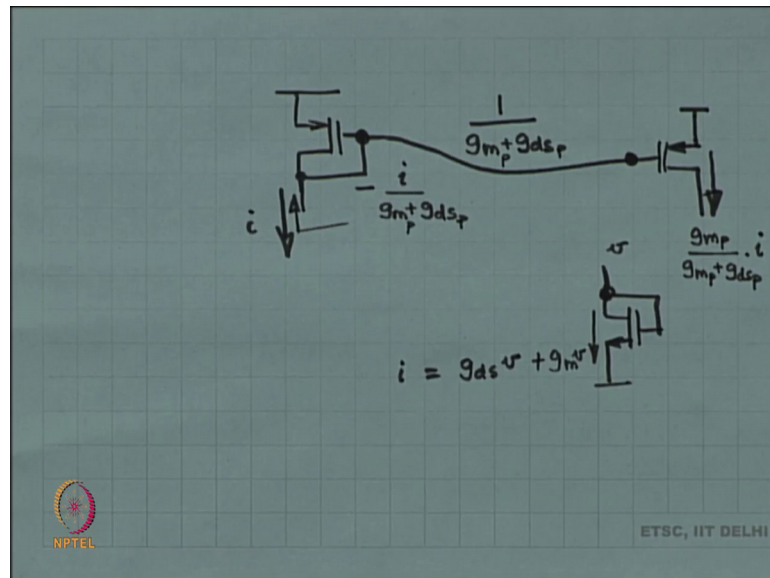 1 / (g_mp + g_dsp)
- i / (g_mp + g_dsp)
i
g_mp / (g_mp + g_dsp) . i
v
i = g_ds v + g_m v
NPTEL
ETSC, IIT DELHI